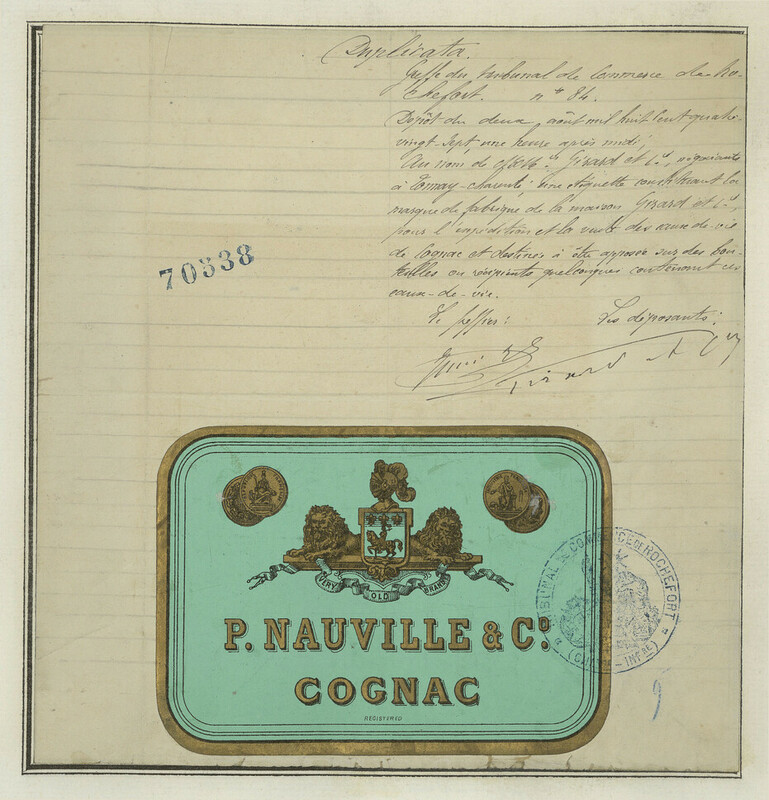 Duplicata.
Greffe du tribunal de Commerce de Ro-
chefort. n° 84.
Dépôt du deux, août mil huit cent quatre-
vingt-sept, une heure après midi,
Au nom de Girard et Cie, négociants
à Tonnay-Charente; une étiquette constituant la
marque de fabrique de la maison Girard et Cie,
pour l'expédition et la vente des eaux-de-vie
de Cognac et destinée à être apposée sur des bou-
teilles ou récipients quelconques contenant ces
eaux-de-vie.
Le greffier: Les déposants:
Girard et Cie
70338
VERY OLD BRANDY
P. NAUVILLE & Co.
COGNAC
REGISTERED
TRIBUNAL DE COMMERCE DE ROCHEFORT
(CHARTE-INFRE)